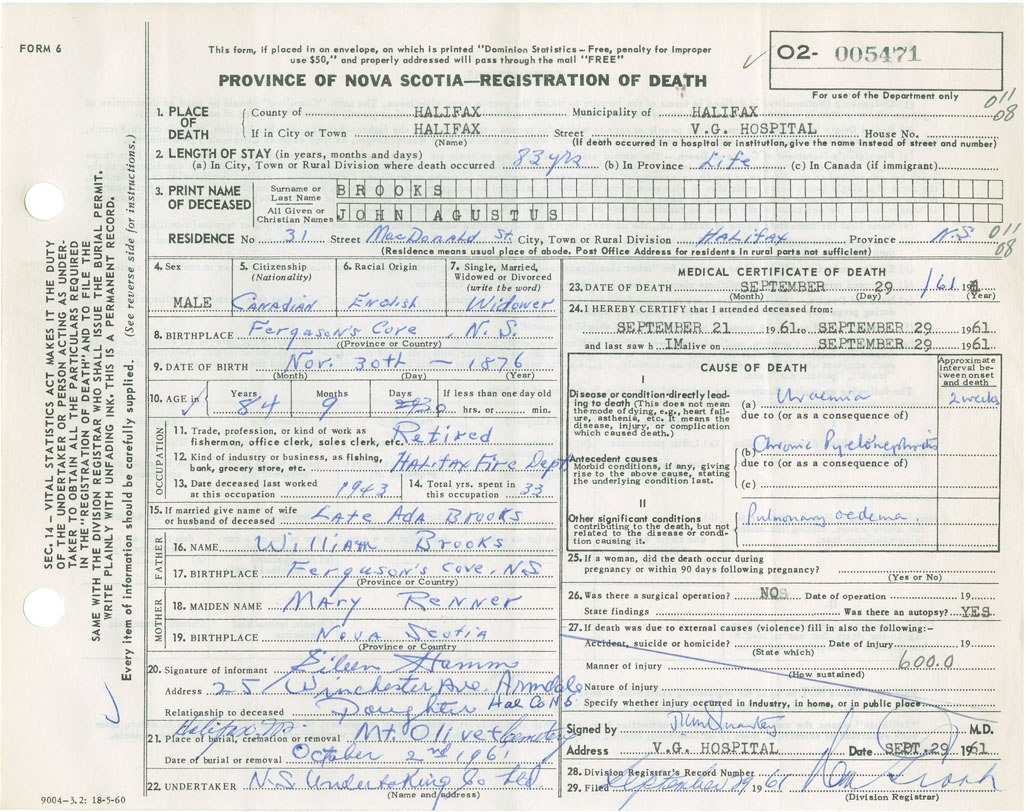 FORM 6
This form, if placed in an envelope, on which is printed "Dominion Statistics – Free, penalty for improper
use $50," and properly addressed will pass through the mail "FREE"
PROVINCE OF NOVA SCOTIA—REGISTRATION OF DEATH
O2- 005471
For use of the Department only
011
08
1. PLACE OF DEATH
County of HALIFAX Municipality of HALIFAX
If in City or Town HALIFAX Street V.G. HOSPITAL House No.
(Name) (If death occurred in a hospital or institution, give the name instead of street and number)
2. LENGTH OF STAY (in years, months and days)
(a) In City, Town or Rural Division where death occurred 83 yrs (b) In Province Life (c) In Canada (if immigrant)
3. PRINT NAME OF DECEASED
Surname or Last Name BROOKS
All Given or Christian Names JOHN AGUSTUS
RESIDENCE No 31 Street MacDonald St. City, Town or Rural Division Halifax Province N.S
011
08
(Residence means usual place of abode. Post Office Address for residents in rural parts not sufficient)
4. Sex MALE
5. Citizenship (Nationality) Canadian
6. Racial Origin English
7. Single, Married, Widowed or Divorced (write the word) Widower
8. BIRTHPLACE Fergason's Cove, N.S.
(Province or Country)
9. DATE OF BIRTH Nov. 30th – 1876
(Month) (Day) (Year)
10. AGE in Years 84 Months 9 Days 30 If less than one day old hrs. or min.
OCCUPATION
11. Trade, profession, or kind of work as fisherman, office clerk, sales clerk, etc. Retired
12. Kind of industry or business, as fishing, bank, grocery store, etc. Halifax Fire Dept
13. Date deceased last worked at this occupation 1943
14. Total yrs. spent in this occupation 33
15. If married give name of wife or husband of deceased Late Ada Brooks
FATHER
16. NAME William Brooks
17. BIRTHPLACE Ferguson's Cove, N.S
(Province or Country)
MOTHER
18. MAIDEN NAME Mary Renner
19. BIRTHPLACE Nova Scotia
(Province or Country)
20. Signature of informant Eileen Hamm
Address 25 Winchester Ave. Armdale
Hal Co N S
Relationship to deceased Daughter
Halifax,
21. Place of burial, cremation or removal Mt. Olivet Cemetery
Date of burial or removal October 2nd 1961
22. UNDERTAKER N.S Undertaking Co Ltd.
(Name and address)
9004-3.2: 18-5-60
SEC. 14 – VITAL STATISTICS ACT MAKES IT THE DUTY
OF THE UNDERTAKER OR PERSON ACTING AS UNDER-
TAKER TO OBTAIN ALL THE PARTICULARS REQUIRED
IN THE "REGISTRATION OF DEATH" AND TO FILE THE
SAME WITH THE DIVISION REGISTRAR WHO SHALL ISSUE THE BURIAL PERMIT.
WRITE PLAINLY WITH UNFADING INK. THIS IS A PERMANENT RECORD.
Every item of information should be carefully supplied. (See reverse side for instructions.)
MEDICAL CERTIFICATE OF DEATH
23. DATE OF DEATH SEPTEMBER 29 1961
(Month) (Day) (Year)
24. I HEREBY CERTIFY that I attended deceased from:
SEPTEMBER 21 1961 to SEPTEMBER 29 1961
and last saw h IM alive on SEPTEMBER 29 1961
CAUSE OF DEATH
Approximate interval between onset and death
I
Disease or condition directly leading to death (This does not mean the mode of dying, e.g., heart failure, asthenia, etc. It means the disease, injury, or complication which caused death.)
(a) Uraemia 2 weeks
due to (or as a consequence of)
Antecedent causes
Morbid conditions, if any, giving rise to the above cause, stating the underlying condition last.
(b) Chronic Pyelonephritis
due to (or as a consequence of)
(c)
II
Other significant conditions contributing to the death, but not related to the disease or condition causing it.
Pulmonary oedema.
25. If a woman, did the death occur during
pregnancy or within 90 days following pregnancy?
(Yes or No)
26. Was there a surgical operation? NO Date of operation 19
State findings Was there an autopsy? YES
27. If death was due to external causes (violence) fill in also the following:–
Accident, suicide or homicide? Date of injury 19
(State which)
600.0
Manner of injury
(How sustained)
Nature of injury
Specify whether injury occurred in industry, in home, or in public place.
Signed by M.D.
Address V.G. HOSPITAL Date SEPT. 29 1961
28. Division Registrar's Record Number
29. Filed September 29 1961
(Division Registrar)